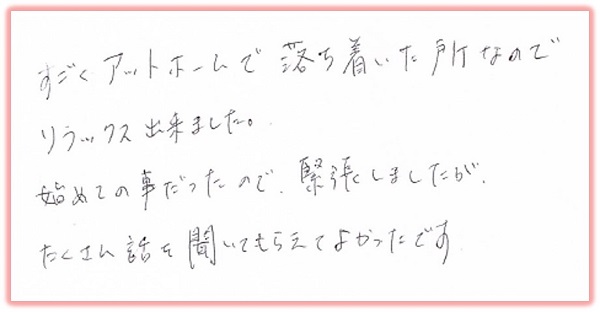 すごくアットホームで落ち着いた所なので
リラックス出来ました。
始めての事だったので、緊張しましたが、
たくさん話を聞いてもらえてよかったです